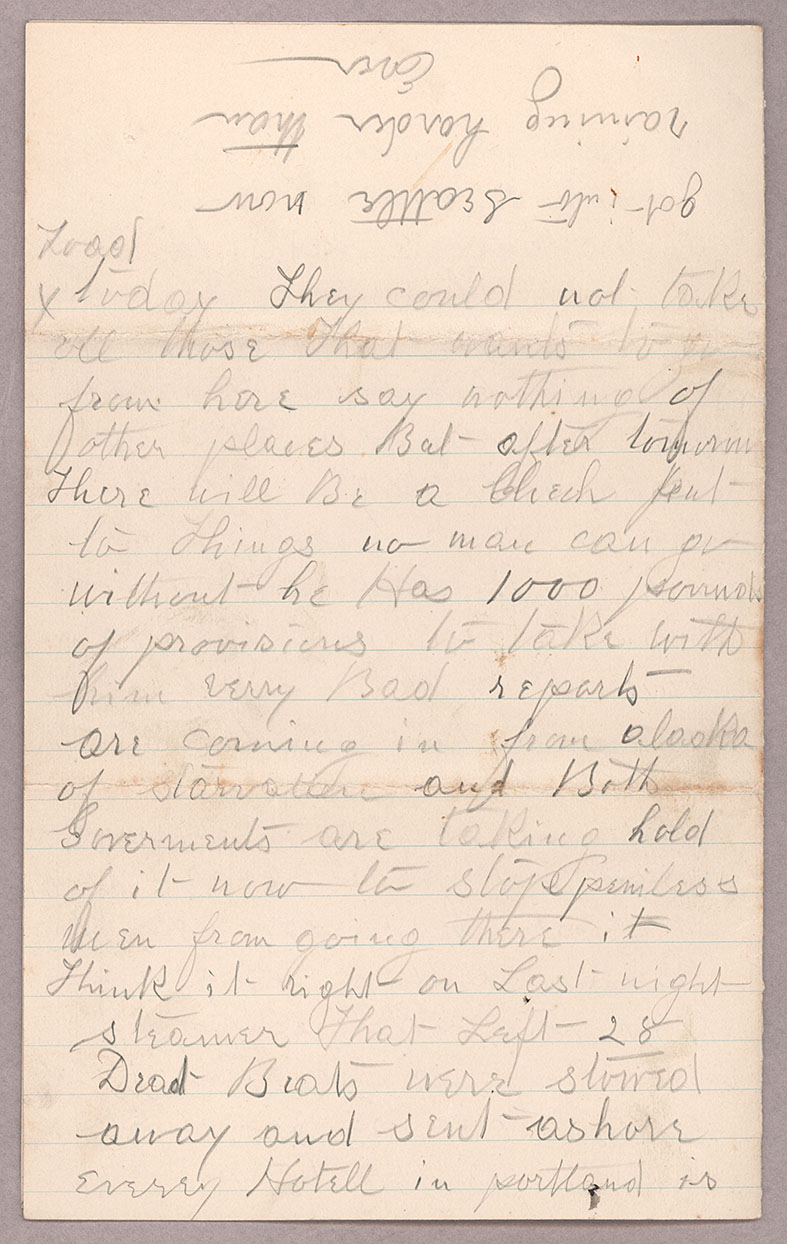 got into Seattle now
raining harder than
Ever
Load
x today They could not take
all those That wants to go
from here say nothing of
other places But after tomorrow
There will Be a Check put
to Things no man can go
without he Has 1000 pounds
of provisions to take with
him verry Bad reports
are coming in from alaska
of starvation and Both
Goverments are taking hold
of it now to stop peniless
Men from going there it
Think it right on Last night
steamer That Left 28
Dead Beats were stowed
away and sent ashore
everey Hotell in portland is